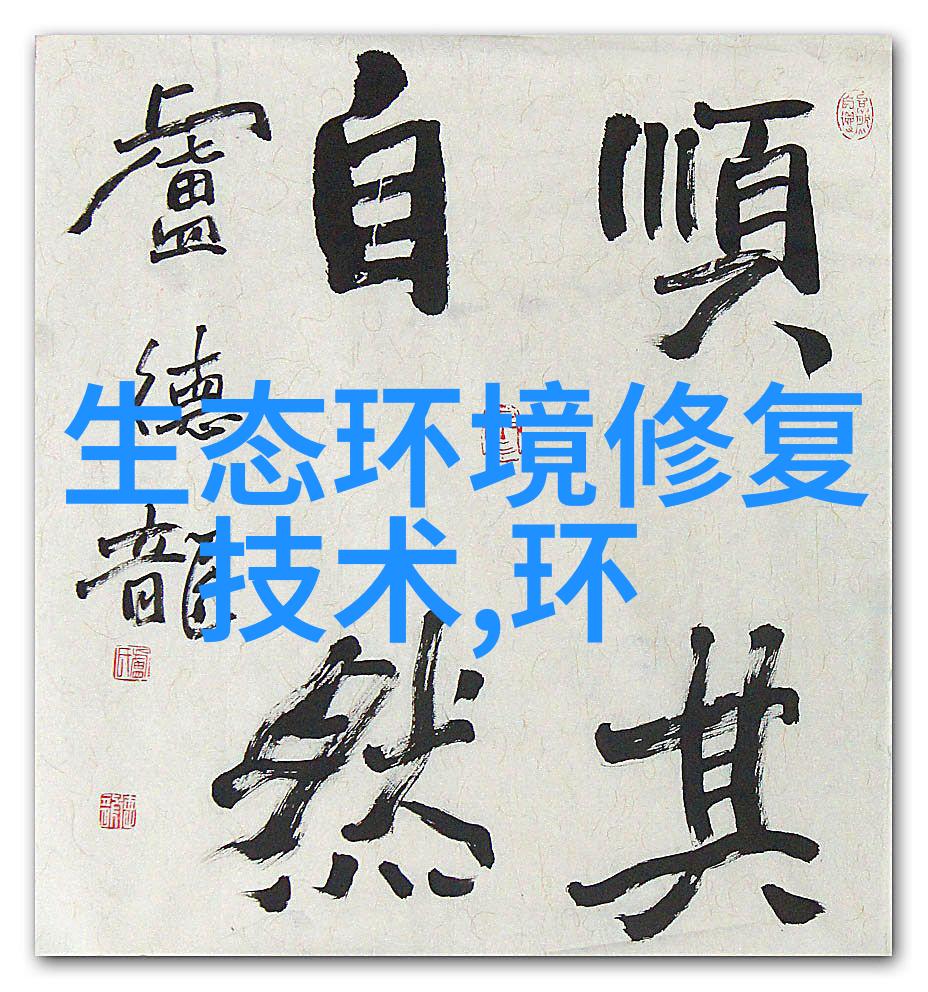 順其
自然
盧德龍
生态环境修复
技术,环